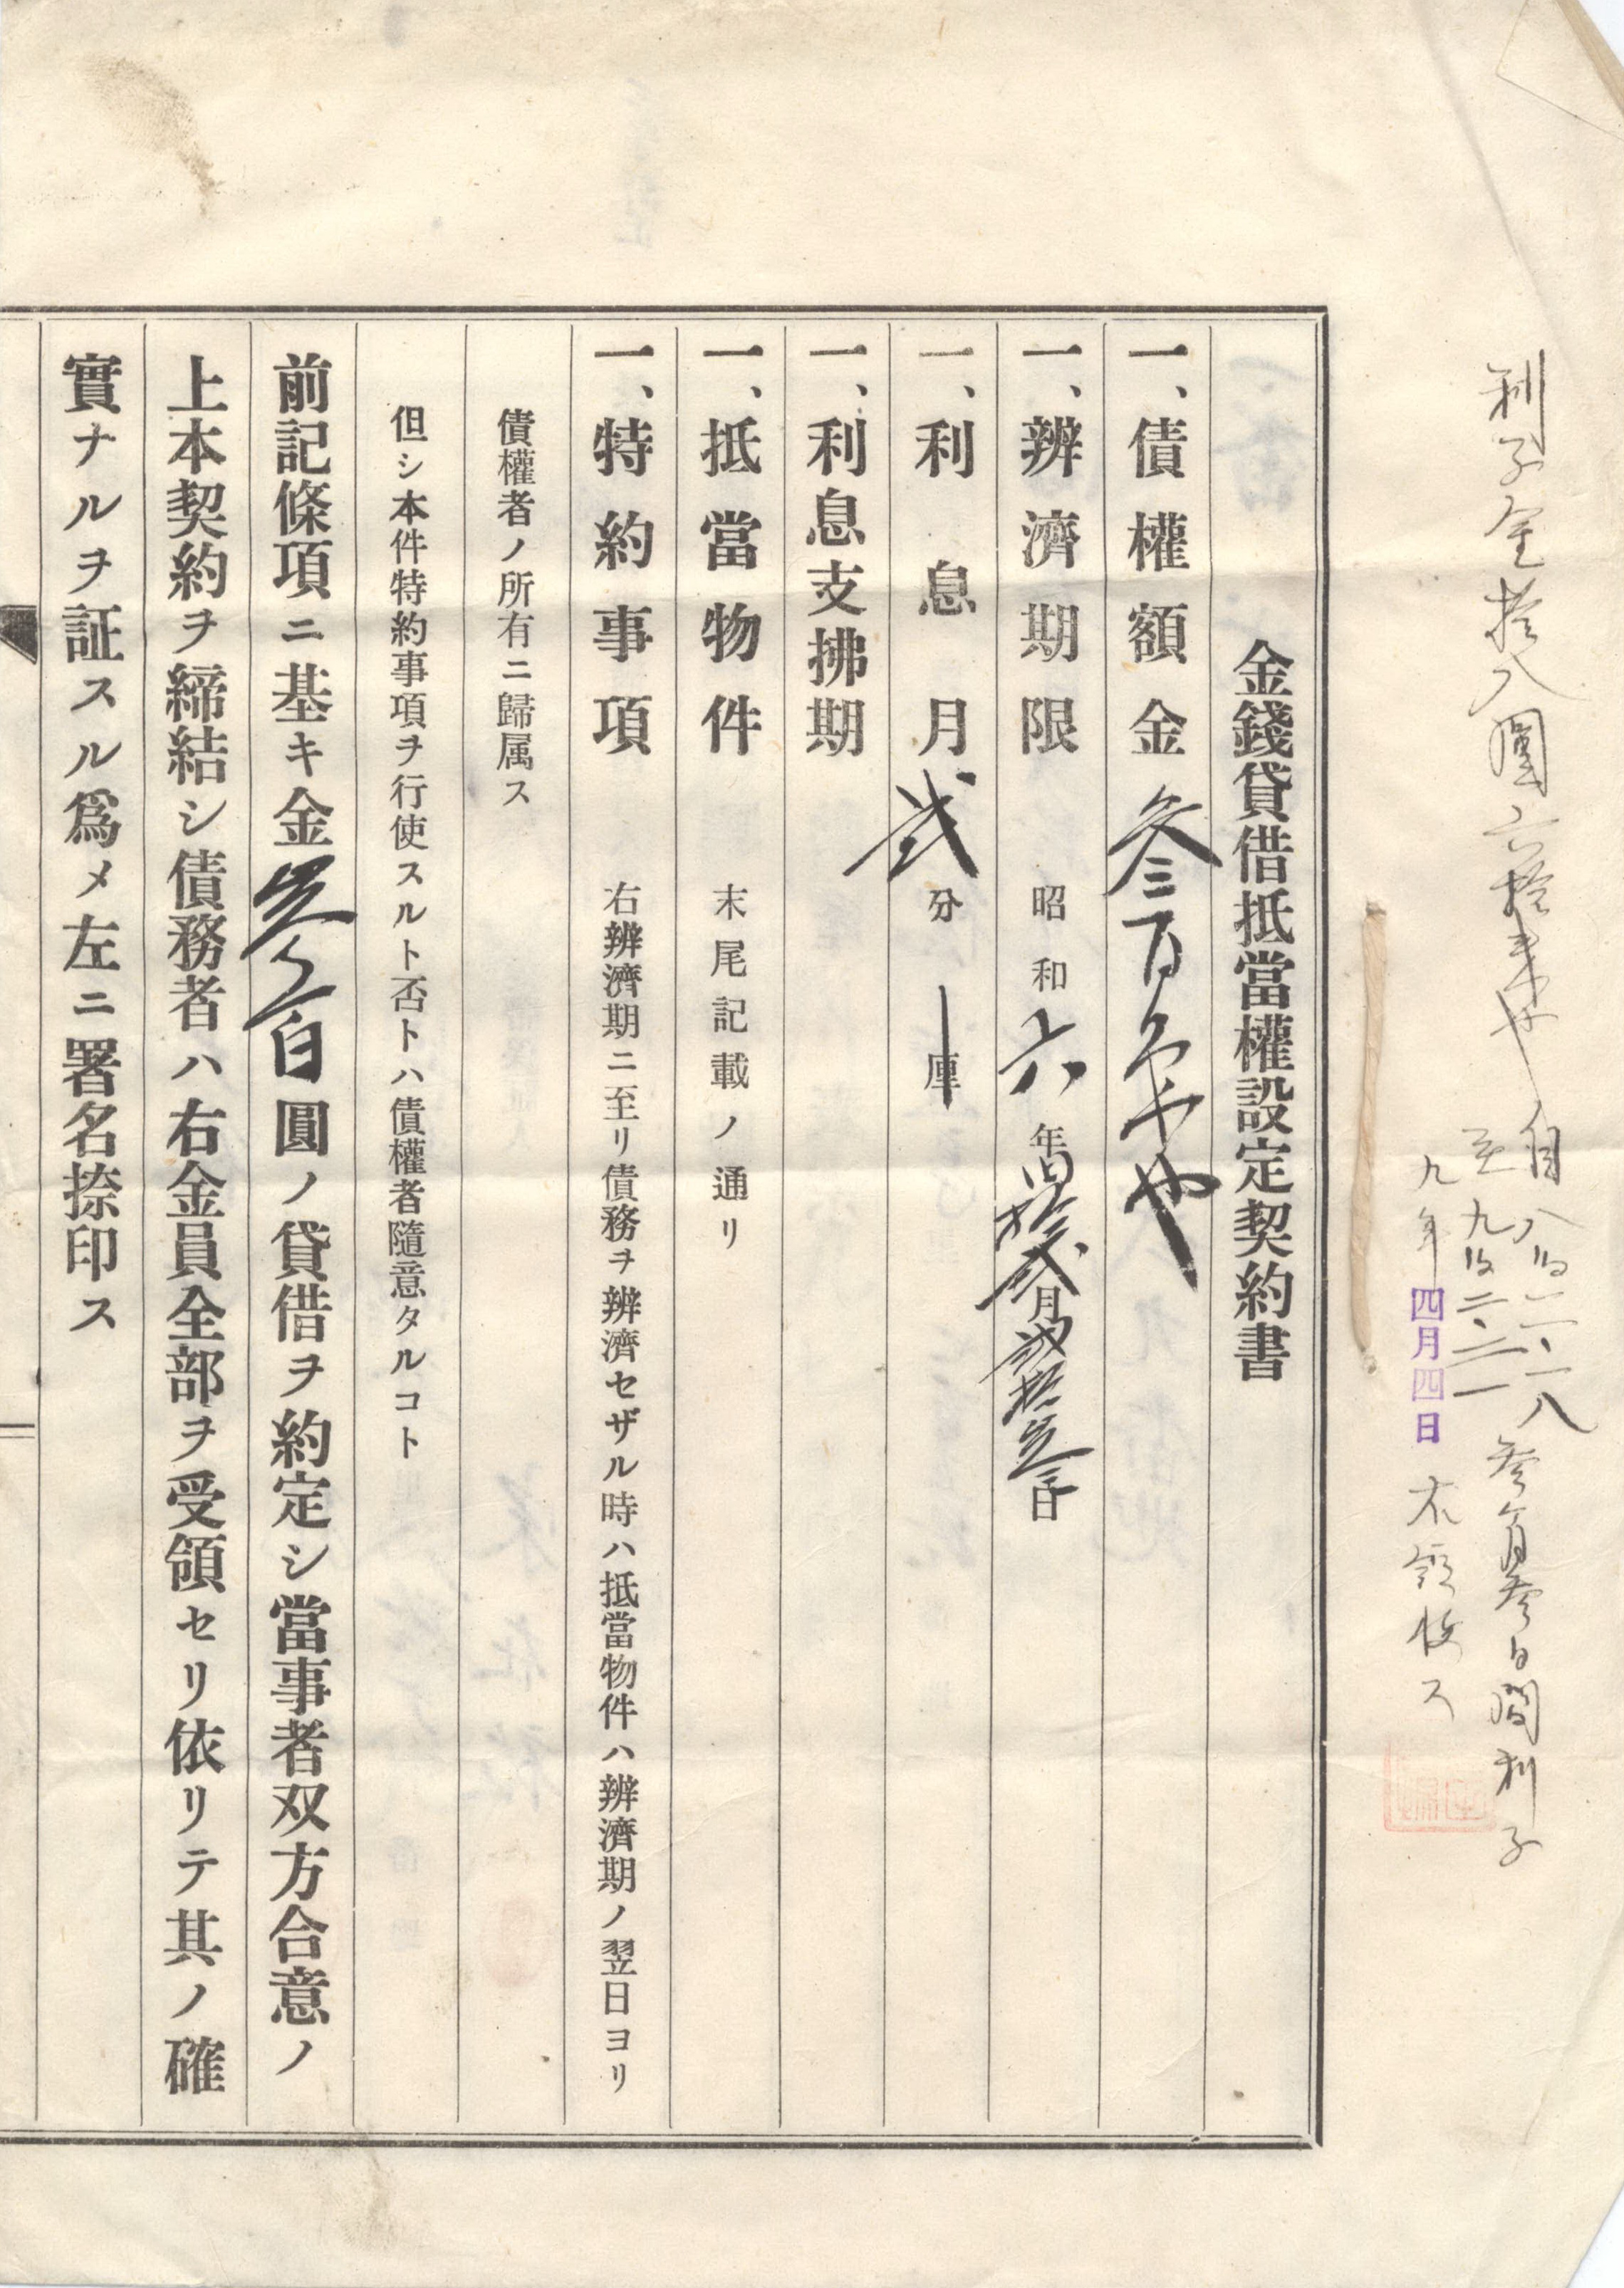 利子金拾八圓六拾 也 自八年 一八 参ヶ月参日間利子
至九年二 二一
九年四月四日 領收ス
金錢貸借抵當權設定契約書
一、債權額金参百円也
一、辨濟期限 昭和六年 拾貳月貳拾 日
一、利息月貳分 厘
一、利息支拂期
一、抵當物件 末尾記載ノ通リ
一、特約事項 右辨濟期ニ至リ債務ヲ辨濟セザル時ハ抵當物件ハ辨濟期ノ翌日ヨリ
債權者ノ所有ニ歸属ス
但シ本件特約事項ヲ行使スルト否トハ債權者隨意タルコト
前記條項ニ基キ金参百圓ノ貸借ヲ約定シ當事者双方合意ノ
上本契約ヲ締結シ債務者ハ右金員全部ヲ受領セリ依リテ其ノ確
實ナルヲ証スル爲メ左ニ署名捺印ス